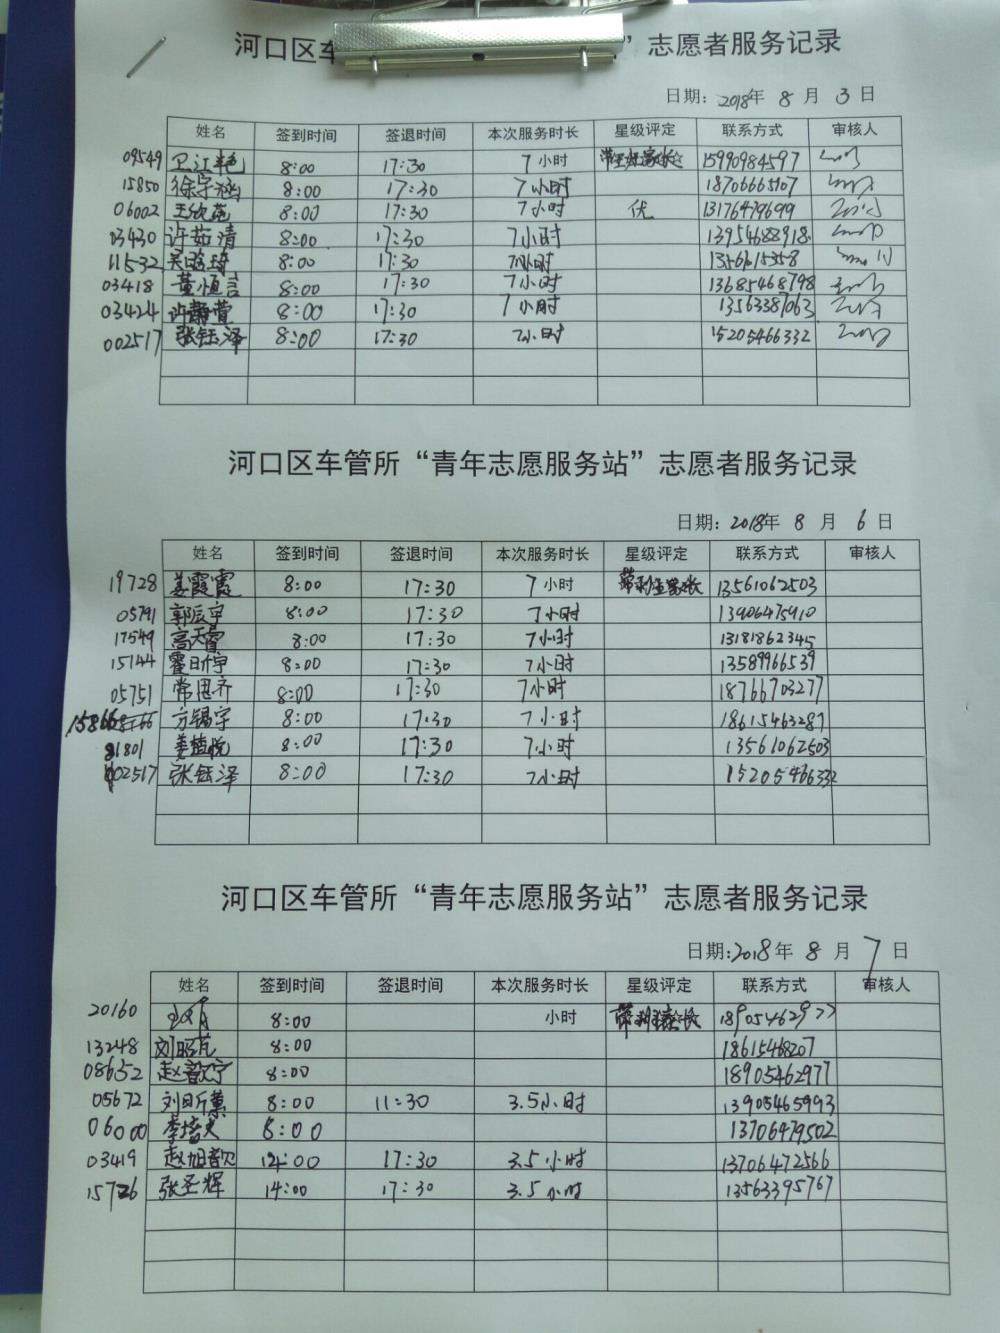 河口区车 ”志愿者服务记录
日期: 2018年 8 月 3 日
姓名 签到时间 签退时间 本次服务时长 星级评定 联系方式 审核人
09549 卫江艳 8:00 17:30 7 小时 15990984597
15850 徐宇涵 8:00 17:30 7小时 18706665107
06002 王欣苑 8:00 17:30 7小时 优 13176479699
03430 许茹清 8:00 17:30 7小时 13954688918
11532 8:00 17:30 7小时 1356615358
03418 董恒言 8:00 17:30 7小时 13685468798
03424 许静萱 8:00 17:30 7小时 13563387063
002517 张钰泽 8:00 17:30 7小时 15205466332
河口区车管所“青年志愿服务站”志愿者服务记录
日期: 2018年 8 月 6 日
姓名 签到时间 签退时间 本次服务时长 星级评定 联系方式 审核人
19728 姜霞霞 8:00 17:30 7 小时 13561062503
05791 郭辰宇 8:00 17:30 7小时 13906475910
17549 高天 8:00 17:30 7小时 13181862345
15144 霍日昕宇 8:00 17:30 7小时 13589966539
05751 常思齐 8:00 17:30 7小时 18766703277
15866 方锡宇 8:00 17:30 7小时 18615463287
1801 姜植悦 8:00 17:30 7小时 13561062503
02517 张钰泽 8:00 17:30 7小时 15205466332
河口区车管所“青年志愿服务站”志愿者服务记录
日期: 2018年 8 月 7 日
姓名 签到时间 签退时间 本次服务时长 星级评定 联系方式 审核人
20160 8:00 小时 18905462977
13248 刘昭芃 8:00 18615468207
08652 赵歆宁 8:00 18905462977
05672 刘昕萸 8:00 11:30 3.5小时 13905465993
06000 李培文 8:00 13706479502
03419 赵旭歆 14:00 17:30 3.5小时 13706472566
15726 张圣辉 14:00 17:30 3.5小时 13563395767